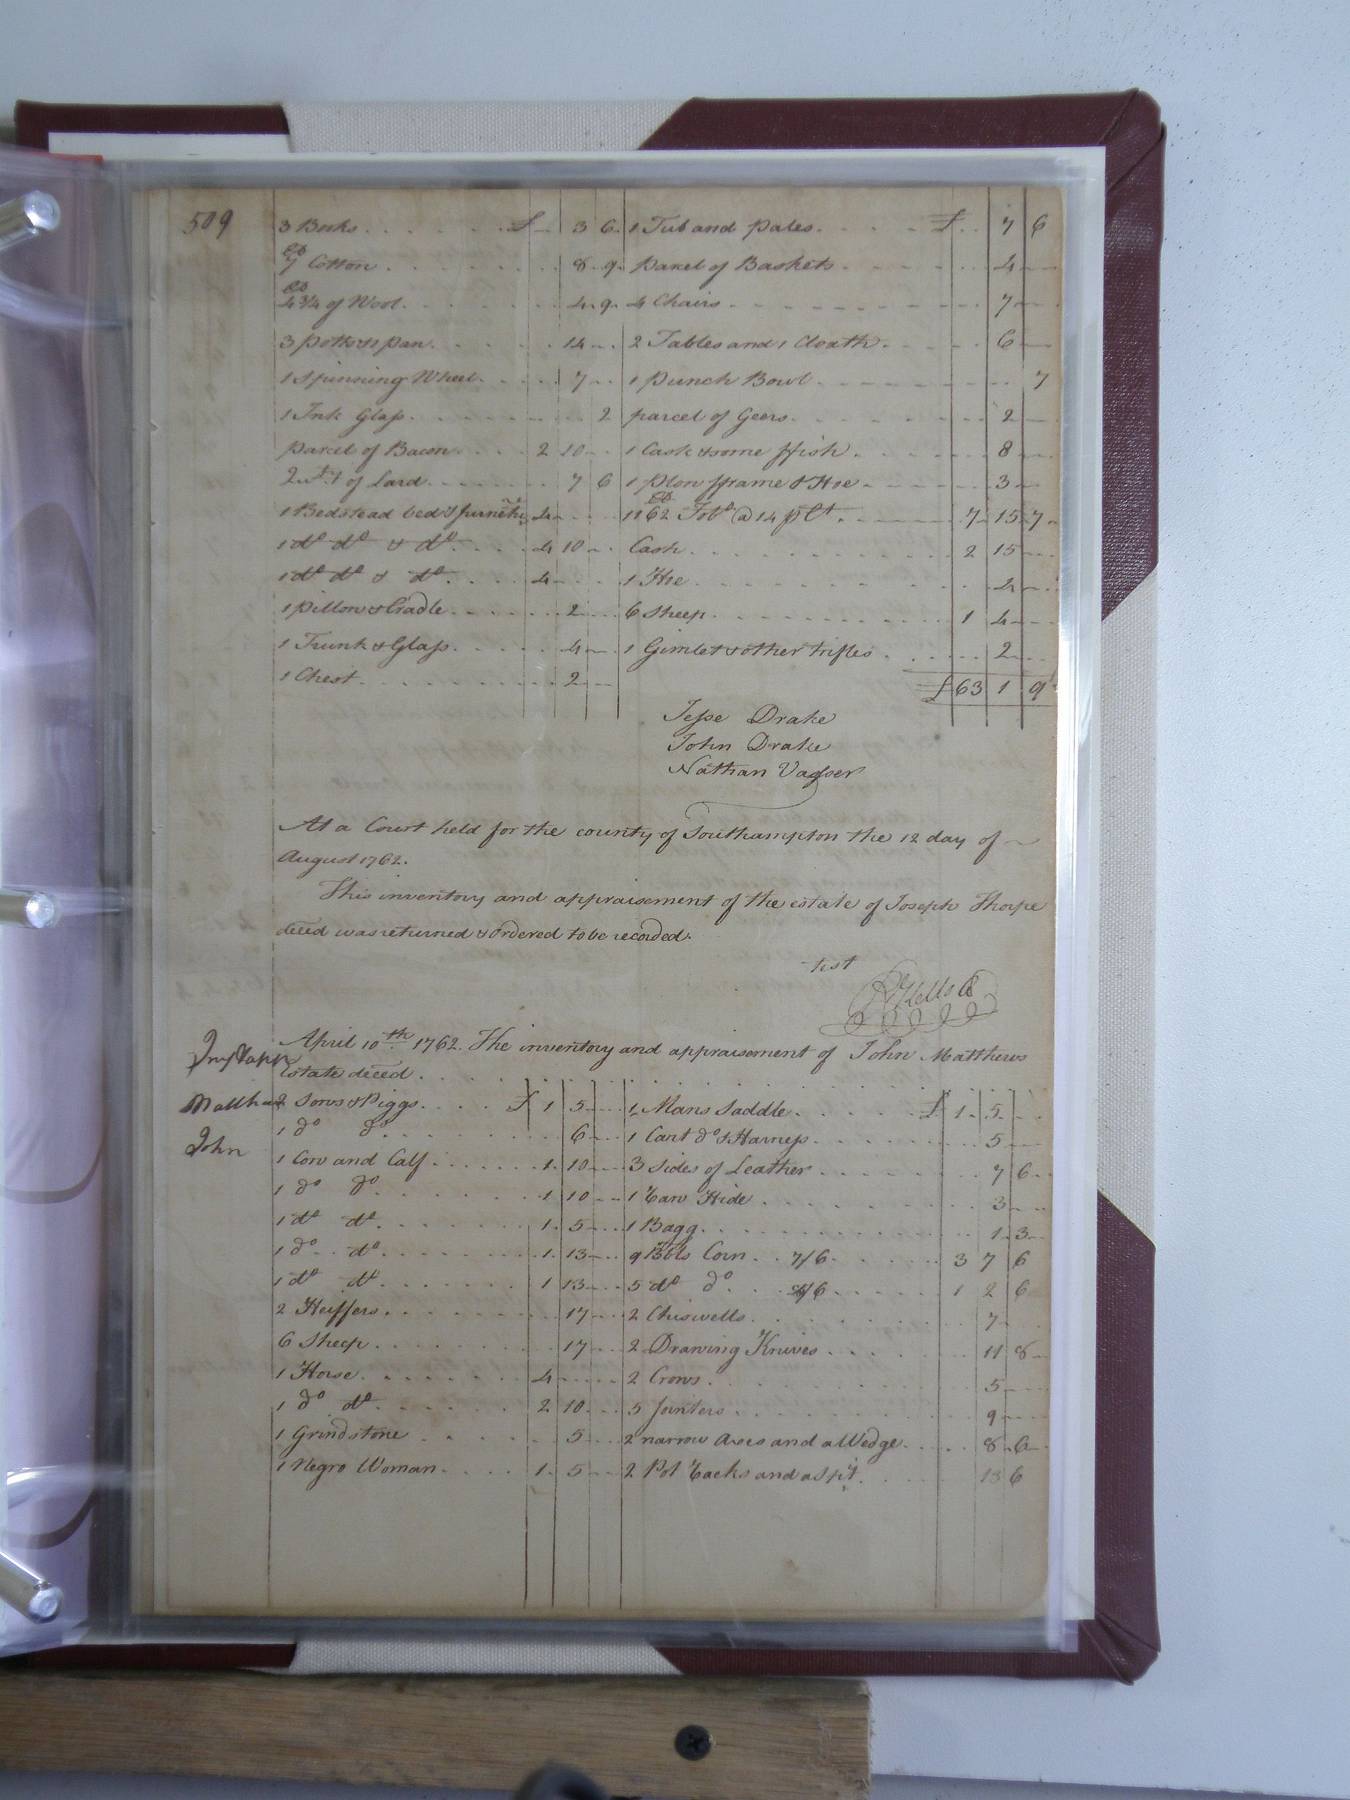 509
3 Books £ 3 6
7 lb Cotton 8 9
4 3/4 lb of Wool 4 9
3 potts & 1 pan 14
1 Spinning Wheel 7
1 Ink Glass 2
parcel of Bacon 2 10
of Lard 7 6
1 Bedstead bed & furnetu 4
1 do do & do 4 10
1 do do & do 4
1 pillow & Cradle 2
1 Trunk & Glass 4
1 Chest 2
1 Tub and pales £ 7 6
parcel of Baskets 4
4 Chairs 7
2 Tables and 1 Cloath 6
1 punch Bowl 7
parcel of Geers 2
1 Cask & some ffish 8
1 plow fframe & Hoe 3
1162 lb Tobo @ 14 p Ct 7 15 7
Cash 2 15
1 Hoe 4
6 Sheep 1 4
1 Gimlet & other trifles 2
£ 63 1 9
Jesse Drake
John Drake
Nathan Vasser
At a Court held for the county of Southampton the 12 day of
August 1762.
This inventory and appraisement of the estate of Joseph Thorpe
deced was returned & ordered to be recorded.
test
R Kello
April 10th 1762. The inventory and appraisement of John Matthews
Estate deced
Matthews
John
2 Sows & Piggs £ 1 5
1 do do 6
1 Cow and Calf 1 10
1 do do 1 10
1 do do 1 5
1 do do 1 13
1 do do 1 13
2 Heiffers 17
6 Sheep 17
1 Horse 4
1 do do 2 10
1 Grindstone 5
1 Negro Woman 1 5
1 Mans Saddle £ 1 5
1 Cart do & Harness 5
3 sides of Leather 7 6
1 Raw Hide 3
1 Bagg 1 3
9 Bbls Corn 7/6 3 7 6
5 do do 4/6 1 2 6
2 Chiswells 7
2 Drawing Knives 11 8
2 Crows 5
5 Jointers 9
2 narrow Axes and a Wedge 8 6
2 Pot Racks and a Spit 13 6